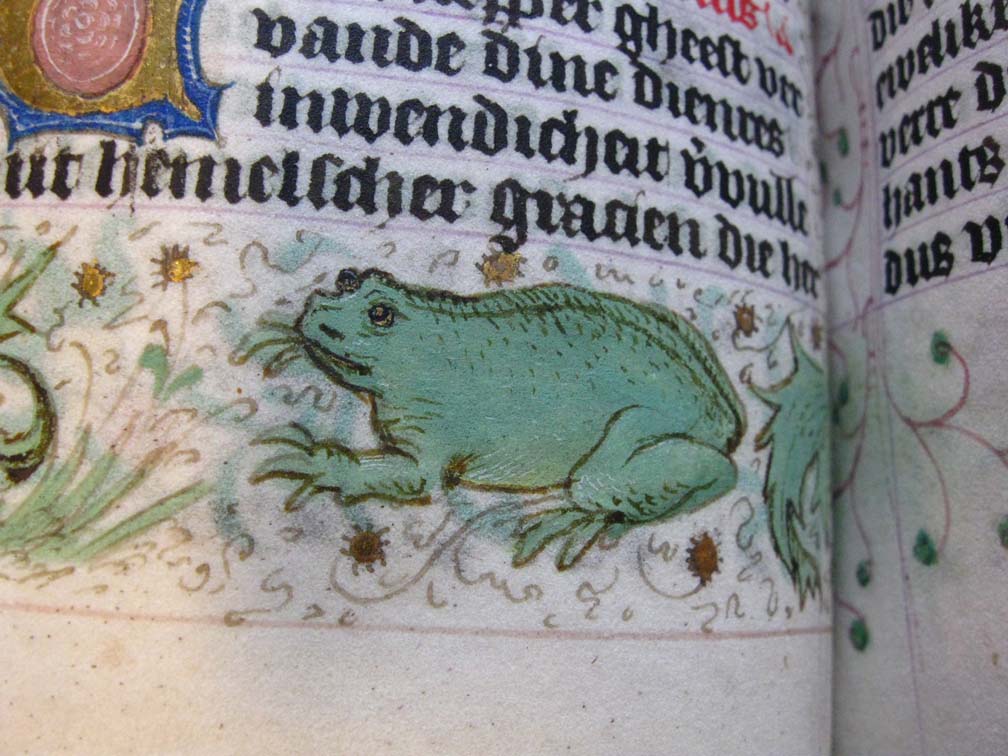 gheest ver
vande dine dienres
inwendicheit v̄vulle
ut hemelscher gracien die her
die
ewelik
verre d
hants
dus v